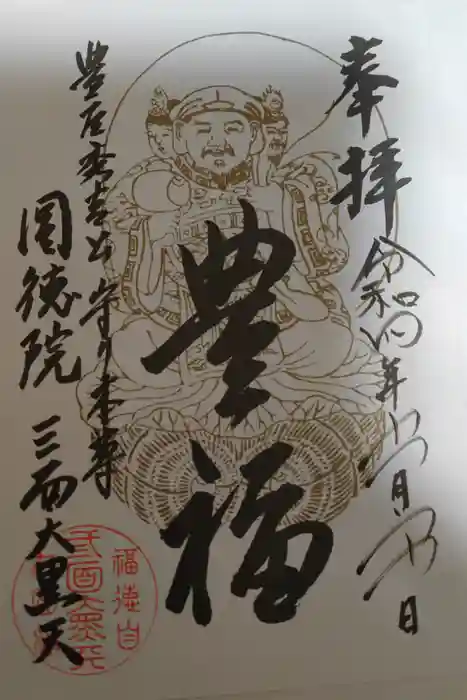 奉拝
令和四年六月四日
豊福
豊臣秀吉公守り本尊
圓徳院 三面大黒天
福徳自